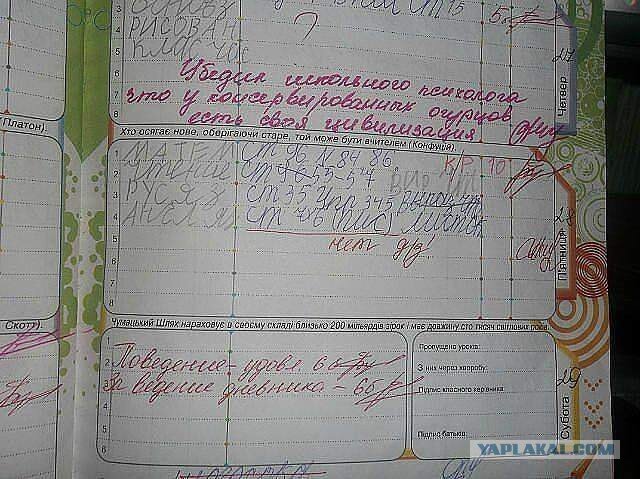 РИСОВАН
КЛАС. ЧАС
?
Четвер
27
Убедил школьного психолога
что у консервированных огурцов
есть своя цивилизация
Платон).
Хто осягає нове, оберігаючи старе, той може бути вчителем (Конфуцій).
МАТЕМ СТ 96 N 84 86
К/Р 10
ЧТЕНИЕ СТ 53-54
РУС ЯЗ СТ 35 Упр 345
АНГЛ ЯЗ СТ (ПИС) ЛИСТОК
нет д/з!
28
П'ятниця
Скотт).
Чумацький Шлях нараховує в своєму складі близько 200 мільярдів зірок і має довжину сто тисяч світлових років.
Поведение - удовл. 6б
За ведение дневника - 6б
Пропущено уроків:
З них через хворобу:
Підпис класного керівника:
Підпис батьків:
29
Субота
YAPLAKAL.COM